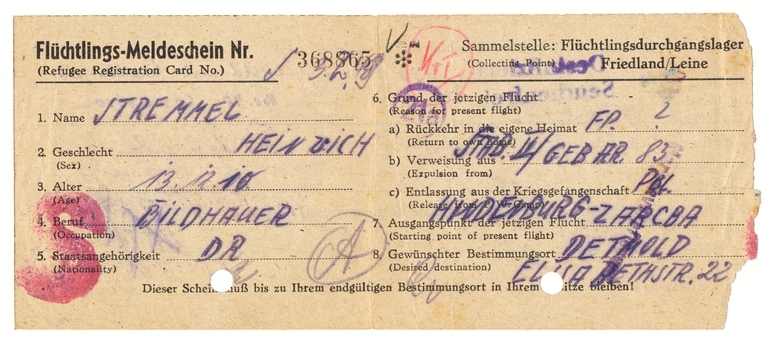 Flüchtlings-Meldeschein Nr. 368865
(Refugee Registration Card No.)
Sammelstelle: Flüchtlingsdurchgangslager
(Collecting Point) Friedland/Leine
1. Name STREMMEL
HEINRICH
2. Geschlecht
(Sex)
3. Alter
(Age)
4. Beruf BILDHAUER
(Occupation)
5. Staatsangehörigkeit DR
(Nationality)
6. Grund der jetzigen Flucht
(Reason for present flight)
a) Rückkehr in die eigene Heimat FP. 2
(Return to own home)
b) Verweisung aus STAB. II/ GEB AR. 83
(Expulsion from)
c) Entlassung aus der Kriegsgefangenschaft
(Release from P.W.Camp)
7. Ausgangspunkt der jetzigen Flucht HINDENBURG-ZARCBA
(Starting point of present flight)
8. Gewünschter Bestimmungsort DETMOLD
(Desired destination) ELISABETHSTR. 22
Dieser Schein muß bis zu Ihrem endgültigen Bestimmungsort in Ihrem Besitze bleiben!